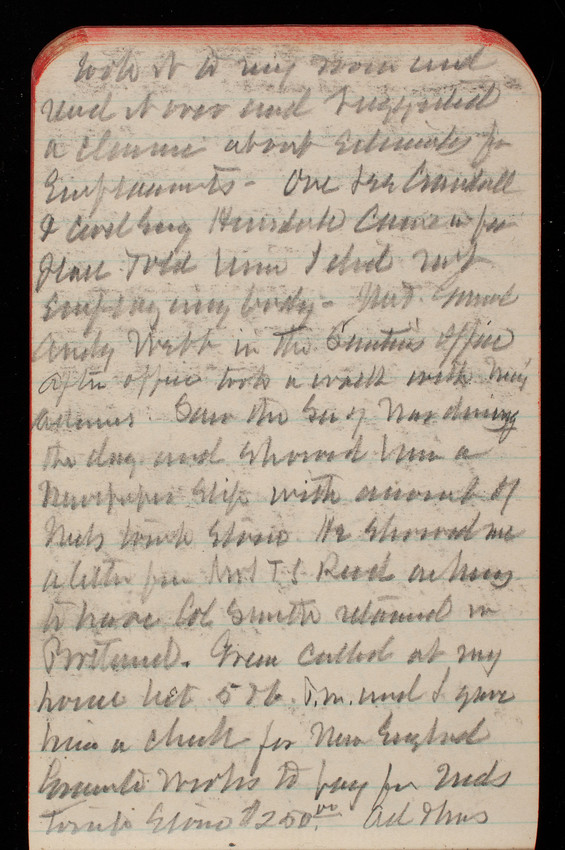 took it to my room and
read it over and suggested
a clause about Estimates for
Emplacements - One
I Civil Eng Hinsdale Came in for
Place Told him I did not
employ any body - Met Genl
Andy Webb in the office
after office took a walk with Miss
Adams. Saw the Sec of War during
the day and showed him a
Newspaper slip with account of
Neds tomb Stone He showed me
a letter from Mrs T S Reed asking
to have Col Smith retained in
Portland. Green called at my
house bet 5 & 6. P.m. and I gave
him a check for New England
Granite Works to pay for Neds
Tomb Stone $250.00